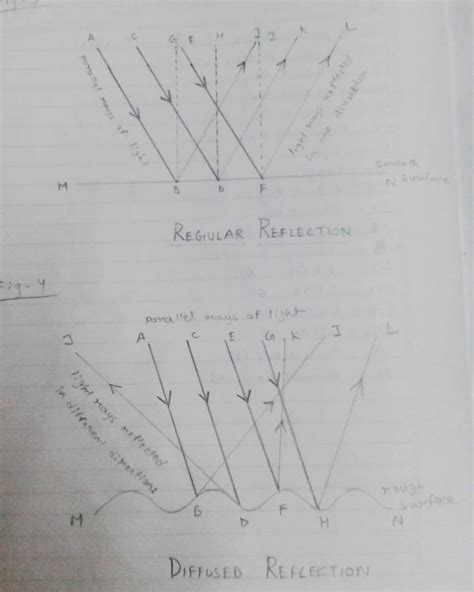 A C G E H J I K L
parallel rays of light
light rays reflected
in one direction
smooth
surface
M B D F N
REGULAR REFLECTION
Fig-4
parallel rays of light
J A C E G K I L
light rays reflected
in different
directions
rough
surface
M B D F H N
DIFFUSED REFLECTION